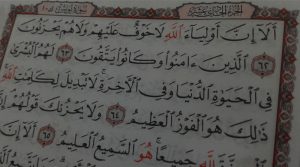 أَلَآ إِنَّ أَوْلِيَآءَ ٱللَّهِ لَا خَوْفٌ عَلَيْهِمْ وَلَا هُمْ يَحْزَنُونَ
٦٢ ٱلَّذِينَ ءَامَنُوا۟ وَكَانُوا۟ يَتَّقُونَ ٦٣ لَهُمُ ٱلْبُشْرَىٰ
فِى ٱلْحَيَوٰةِ ٱلدُّنْيَا وَفِى ٱلْءَاخِرَةِ ۚ لَا تَبْدِيلَ لِكَلِمَٰتِ ٱللَّهِ
ذَٰلِكَ هُوَ ٱلْفَوْزُ ٱلْعَظِيمُ ٦٤ وَلَا يَحْزُنكَ قَوْلُهُمْ إِنَّ
جَمِيعًا ۚ هُوَ ٱلسَّمِيعُ ٱلْعَلِيمُ ٦٥ أَلَآ إِنَّ